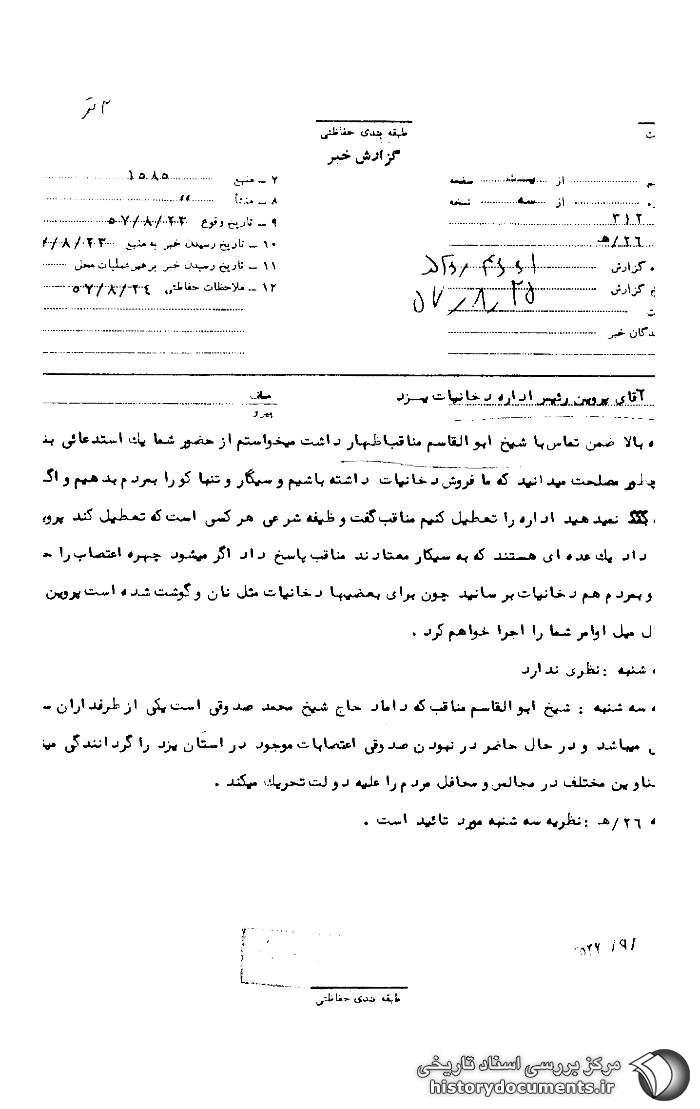 طبقه بندی حفاظتی
گزارش خبر
۷ ـ منبع ۱۵۸۵
۸ ـ منشأ "
۹ ـ تاریخ وقوع ۵۷/۸/۲۳
۱۰ ـ تاریخ رسیدن خبر به منبع ۷/۸/۲۳
۱۱ ـ تاریخ رسیدن خبر برهبر عملیات محل
۱۲ ـ ملاحظات حفاظتی ۵۷/۸/۲۴
از صفحه
از سه نسخه
۳۱۲
۲۶/هـ
گزارش
گزارش ۵۷/۸/۲۵
دگان خبر
آقای پروین رئیس اداره دخانیات یزد
پیرو
ه بالا ضمن تماس با شیخ ابوالقاسم مناقب اظهار داشت میخواستم از حضور شما یك استدعائی بنـ
چطور مصلحت میدانید که ما فروش دخانیات داشته باشیم و سیگار و تنباکو را بمردم بدهیم و اگـ
نمیدهید اداره را تعطیل کنیم مناقب گفت وظیفه شرعی هر کسی است که تعطیل کند پرویـ
داد یك عده ای هستند که به سیگار معتادند مناقب پاسخ داد اگر میشود چهره اعتصاب را حـ
و بمردم هم دخانیات برسانید چون برای بعضیها دخانیات مثل نان و گوشت شده است پروین
ل میل اوامر شما را اجرا خواهم کرد .
ه شنبه : نظری ندارد
ه سه شنبه : شیخ ابوالقاسم مناقب که داماد حاج شیخ محمد صدوقی است یکی از طرفداران
میباشد و در حال حاضر در نبودن صدوقی اعتصابات موجود در استان یزد را گردانندگی میـ
ـناوین مختلف در مجالس و محافل مردم را علیه دولت تحریك میکند .
ه ۲۶/هـ : نظریه سه شنبه مورد تائید است .
طبقه بندی حفاظتی
مرکز بررسی اسناد تاریخی
historydocuments.ir